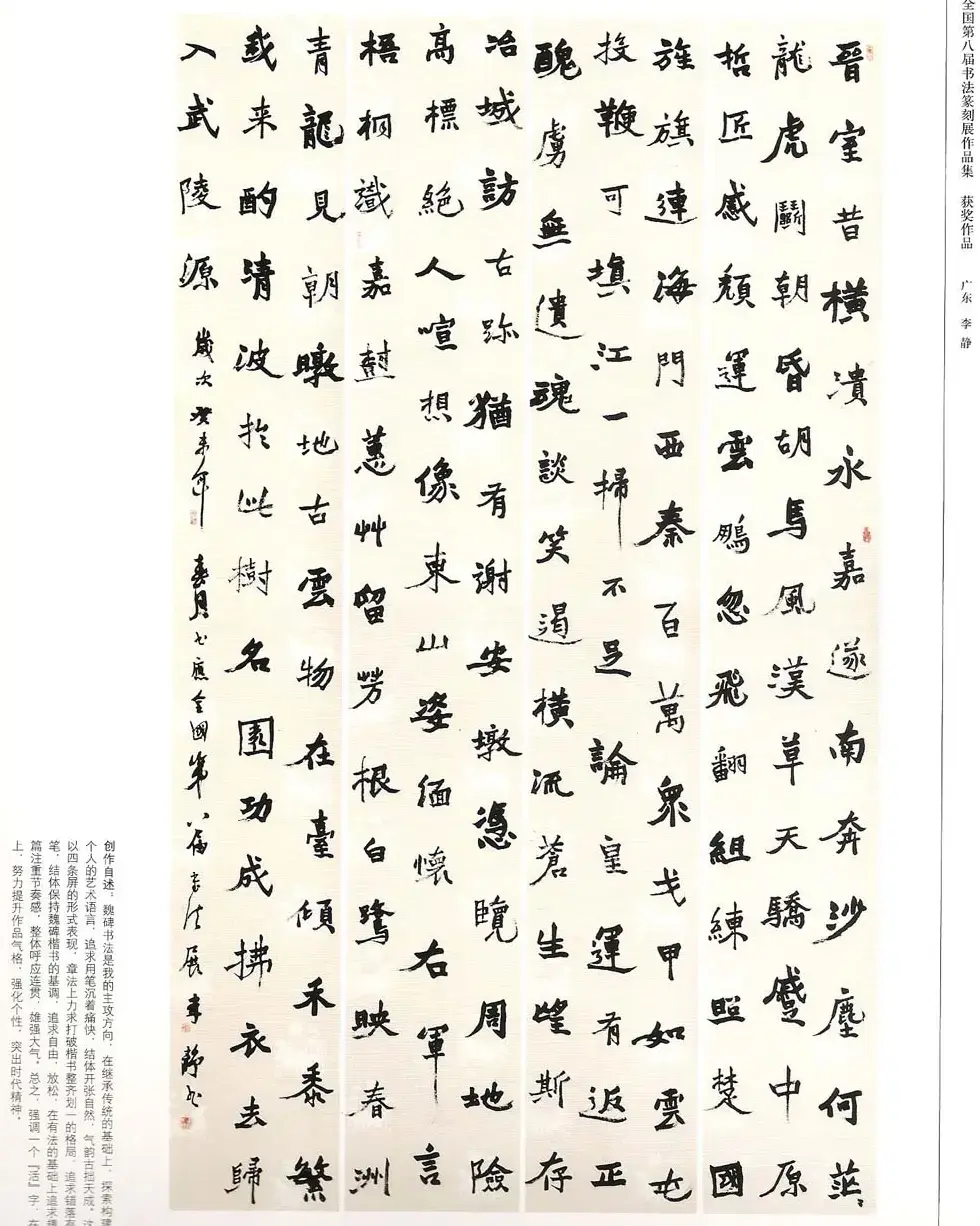 全国第八届书法篆刻展作品集 获奖作品 广东 李静
晉室昔橫潰永嘉遂南奔沙塵何茫茫
龍虎鬭朝昏胡馬風漢草天驕蹙中原
哲匠感頹運雲鵬忽飛翻組練照楚國
旌旗連海門西秦百萬眾戈甲如雲屯
投鞭可填江一掃不足論皇運有返正
醜虜無遺魂談笑遏橫流蒼生望斯存
冶城訪古跡猶有謝安墩憑覽周地險
高標絕人喧想像東山姿緬懷右軍言
梧桐識嘉樹蕙艸留芳根白鷺映春洲
青龍見朝暾地古雲物在臺傾禾黍繁
我来酌清波於此樹名園功成拂衣去歸
入武陵源 歲次癸未年 春月书應全國第八届书法展李静书
创作自述：魏碑书法是我的主攻方向，在继承传统的基础上，探索构建
个人的艺术语言，追求用笔沉着痛快，结体开张自然，气韵古拙天成。这
以四条屏的形式表现，章法上力求打破楷书整齐划一的格局，追求错落有
笔，结体保持魏碑楷书的基调，追求自由、放松，在有法的基础上追求
篇注重节奏感，整体呼应连贯，雄强大气。总之，强调一个『活』字，在
上，努力提升作品气格，强化个性，突出时代精神。